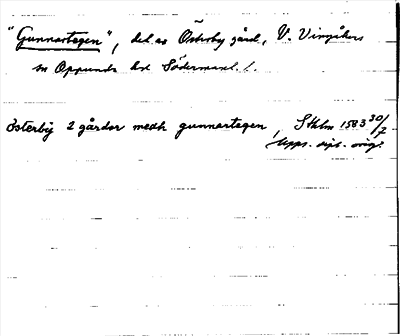 "Gunnartegen", del av Österby gård, V. Vingåkers
sn Oppunda hd Södermanl. l.
österbÿ 2 gårder medh gunnartegen, Sthlm 1583 30/7
Upps. dipl. orig.